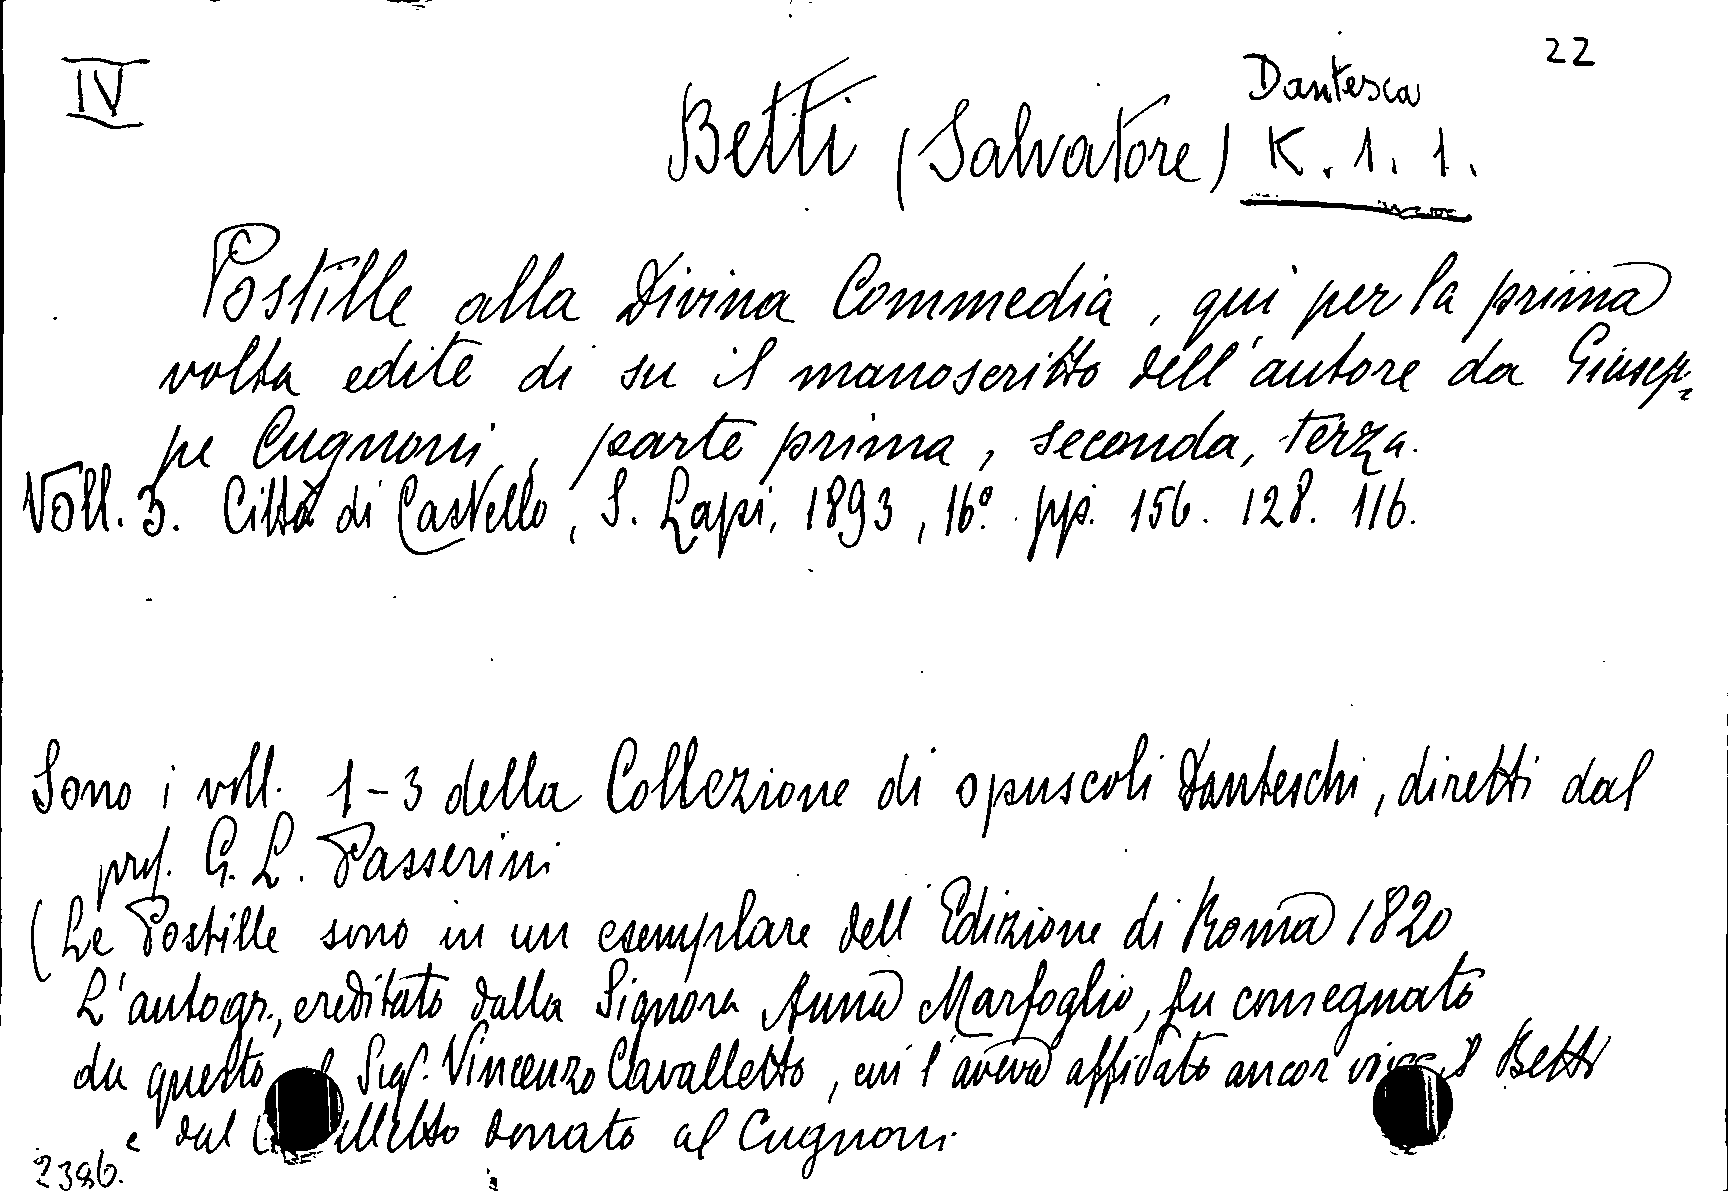 IV
22
Dantesca
Betti (Salvatore) K. 1. 1.
Postille alla Divina Commedia, qui per la prima
volta edite di su il manoscritto dell'autore da Giusep-
pe Cugnoni, parte prima, seconda, terza.
Voll. 3. Città di Castello, S. Lapi, 1893, 16º. pp. 156. 128. 116.
Sono i voll. 1-3 della Collezione di opuscoli Danteschi, diretti dal
prof. G. L. Passerini
(Le Postille sono in un esemplare dell'Edizione di Roma 1820
L'autogr., ereditato dalla Signora Anna Marfoglio, fu consegnato
da questo Sigf. Vincenzo Cavalletto, cui l'aveva affidato ancor Betti
e dal donato al Cugnoni